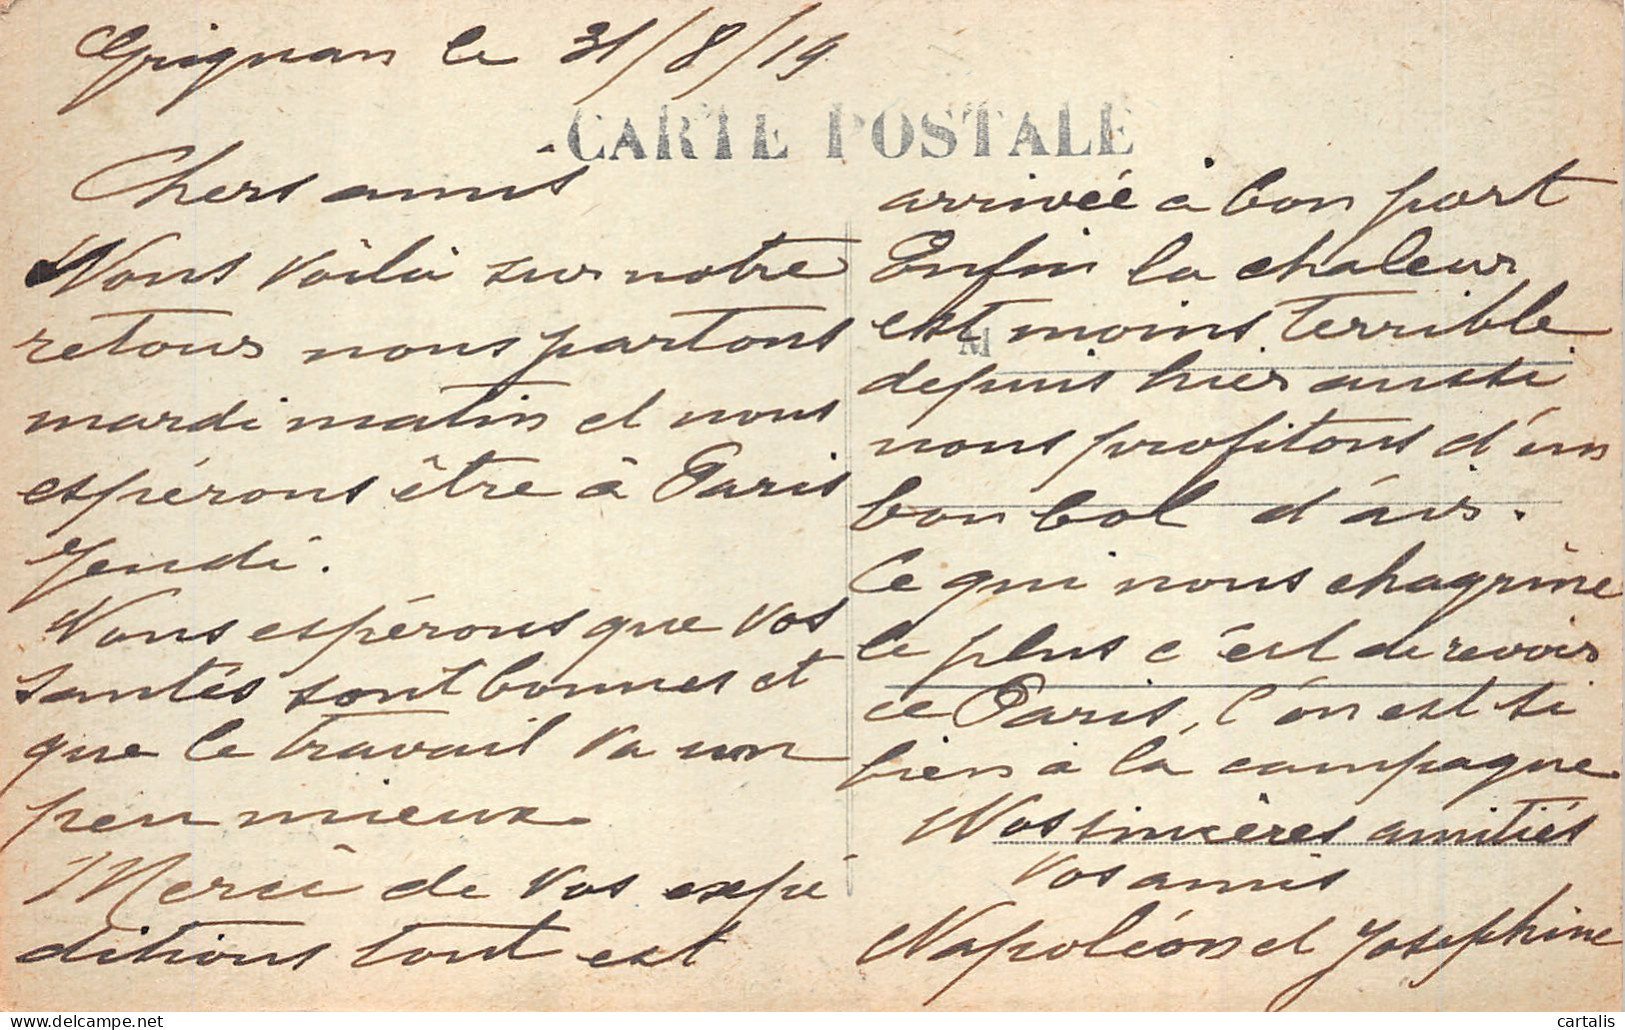 Grignan le 31/8/19
CARTE POSTALE
Chers amis
Nous voilà sur notre
retour nous partons
mardi matin et nous
espérons être à Paris
Jeudi.
Nous espérons que vos
santés sont bonnes et
que le travail va un
peu mieux.
Merci de vos expé
ditions tout est
arrivée à bon port
Enfin la chaleur
est moins terrible
M
depuis hier aussi
nous profitons d'un
bon bol d'air.
Ce qui nous chagrine
le plus c'est de revoir
ce Paris, l'on est si
bien à la campagne
Nos sincères amitiés
vos amis
Napoléon et Josephine
cartalis